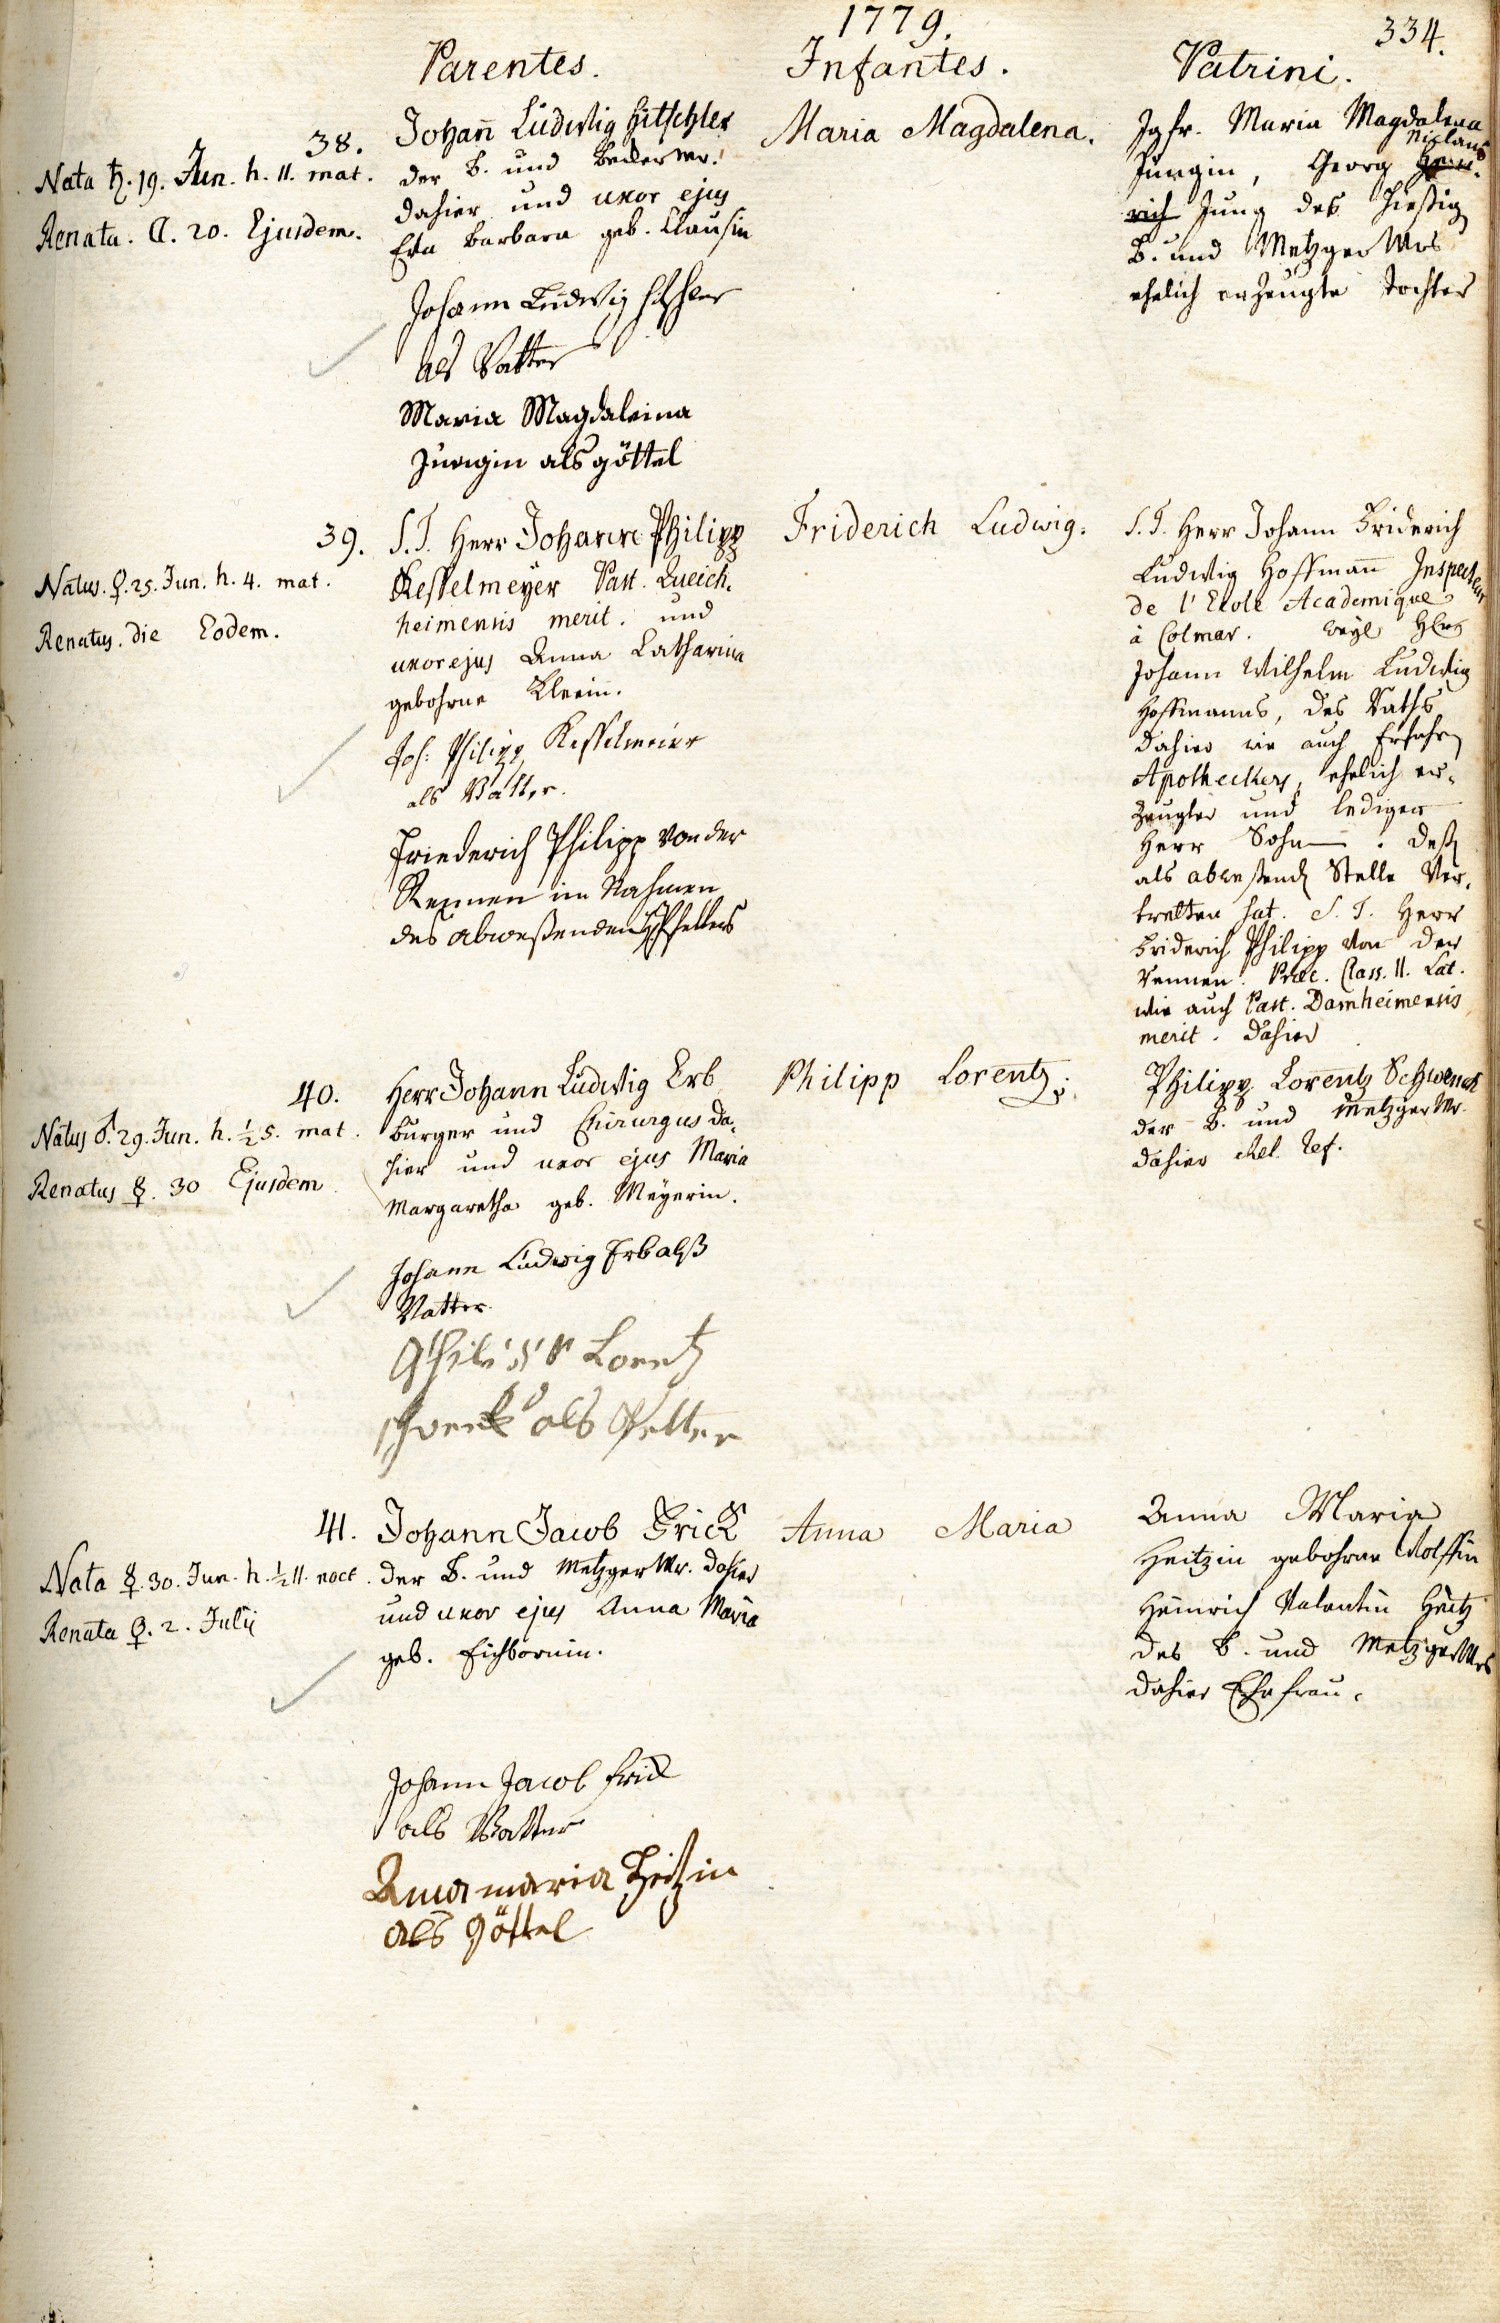 1779.
334.
Parentes.
Infantes.
Patrini.
38.
Nata ♄. 19. Jun. h. 11. mat.
Renata. ☾. 20. Ejusdem.
Johan̄ Ludwig Hitschler
der B. und Becker Mr.
dahier und uxor ejus
Eva Barbara geb. Clausin
Johann Ludwig Hitschler
als Vatter
Maria Magdaleina
Jungin als göttel
Maria Magdalena.
Jgfr. Maria Magdalena
Niclaus
Jungin, Georg Hein-
rich Jung des hiesig
B. und Metzger Mrs
ehelich erzeugte Tochter
39.
Natus. ♀. 25. Jun. h. 4. mat.
Renatus. die Eodem.
S. T. Herr Johann Philipp
Kesselmeyer Past. Queich-
heimensis merit. und
uxor ejus Anna Catharina
gebohrne Kleein.
Joh: Philipp Kesselmeier
als Vatter.
Friederich Philipp von der
Rennen im Nahmen
des abweßenden H Pfetters
Friderich Ludwig.
S. T. Herr Johann Friderich
Ludwig Hoffman̄ Inspecteur
de l'Ecole Academique
à Colmar. weyl Hrn
Johann Wilhelm Ludwig
Hoffmanns, des Raths
dahier wie auch Erfahrn
Apotheckers, ehelich er-
zeugter und lediger
Herr Sohn. Deß
als abweßend Stelle Ver-
tretten hat. S. T. Herr
Friderich Philipp von der
Rennen. Præc. Class. II. Lat.
wie auch Past. Damheimensis
merit. dahier
40.
Natus ♂. 29. Jun. h. ½5. mat.
Renatus ☿. 30 Ejusdem
Herr Johann Ludwig Erb
Burger und Chirurgus da-
hier und uxor ejus Maria
Margaretha geb. Meyerin.
Johann Ludwig Erb alß
Vatter
Philipp Lorentz
schwenck als Petter
Philipp Lorentz.
Philipp Lorentz Schwenck
der B. und Metzger Mr.
dahier Rel. Ref.
41.
Nata ☿. 30. Jun. h. ½11. noct.
Renata ♀. 2. Julij
Johann Jacob Frick
der B. und Metzger Mr. dahier
und uxor ejus Anna Maria
geb. Eichbornin.
Johann Jacob Frick
als Vatter
Anna maria Heitzin
als Göttel
Anna Maria
Anna Maria
Heitzin gebohrne Wolffin
Heinrich Valentin Heitz
des B. und Metzger Mrs
dahier Ehefrau.